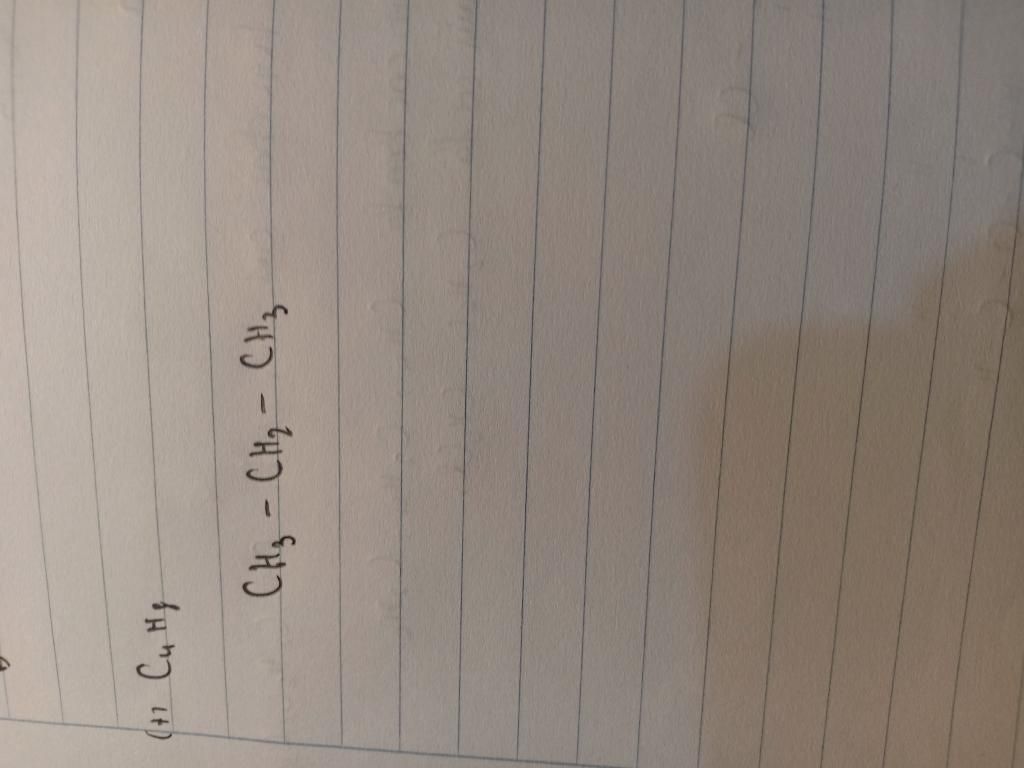 (H) C₄ H₈
CH₃ - CH₂ - CH₃